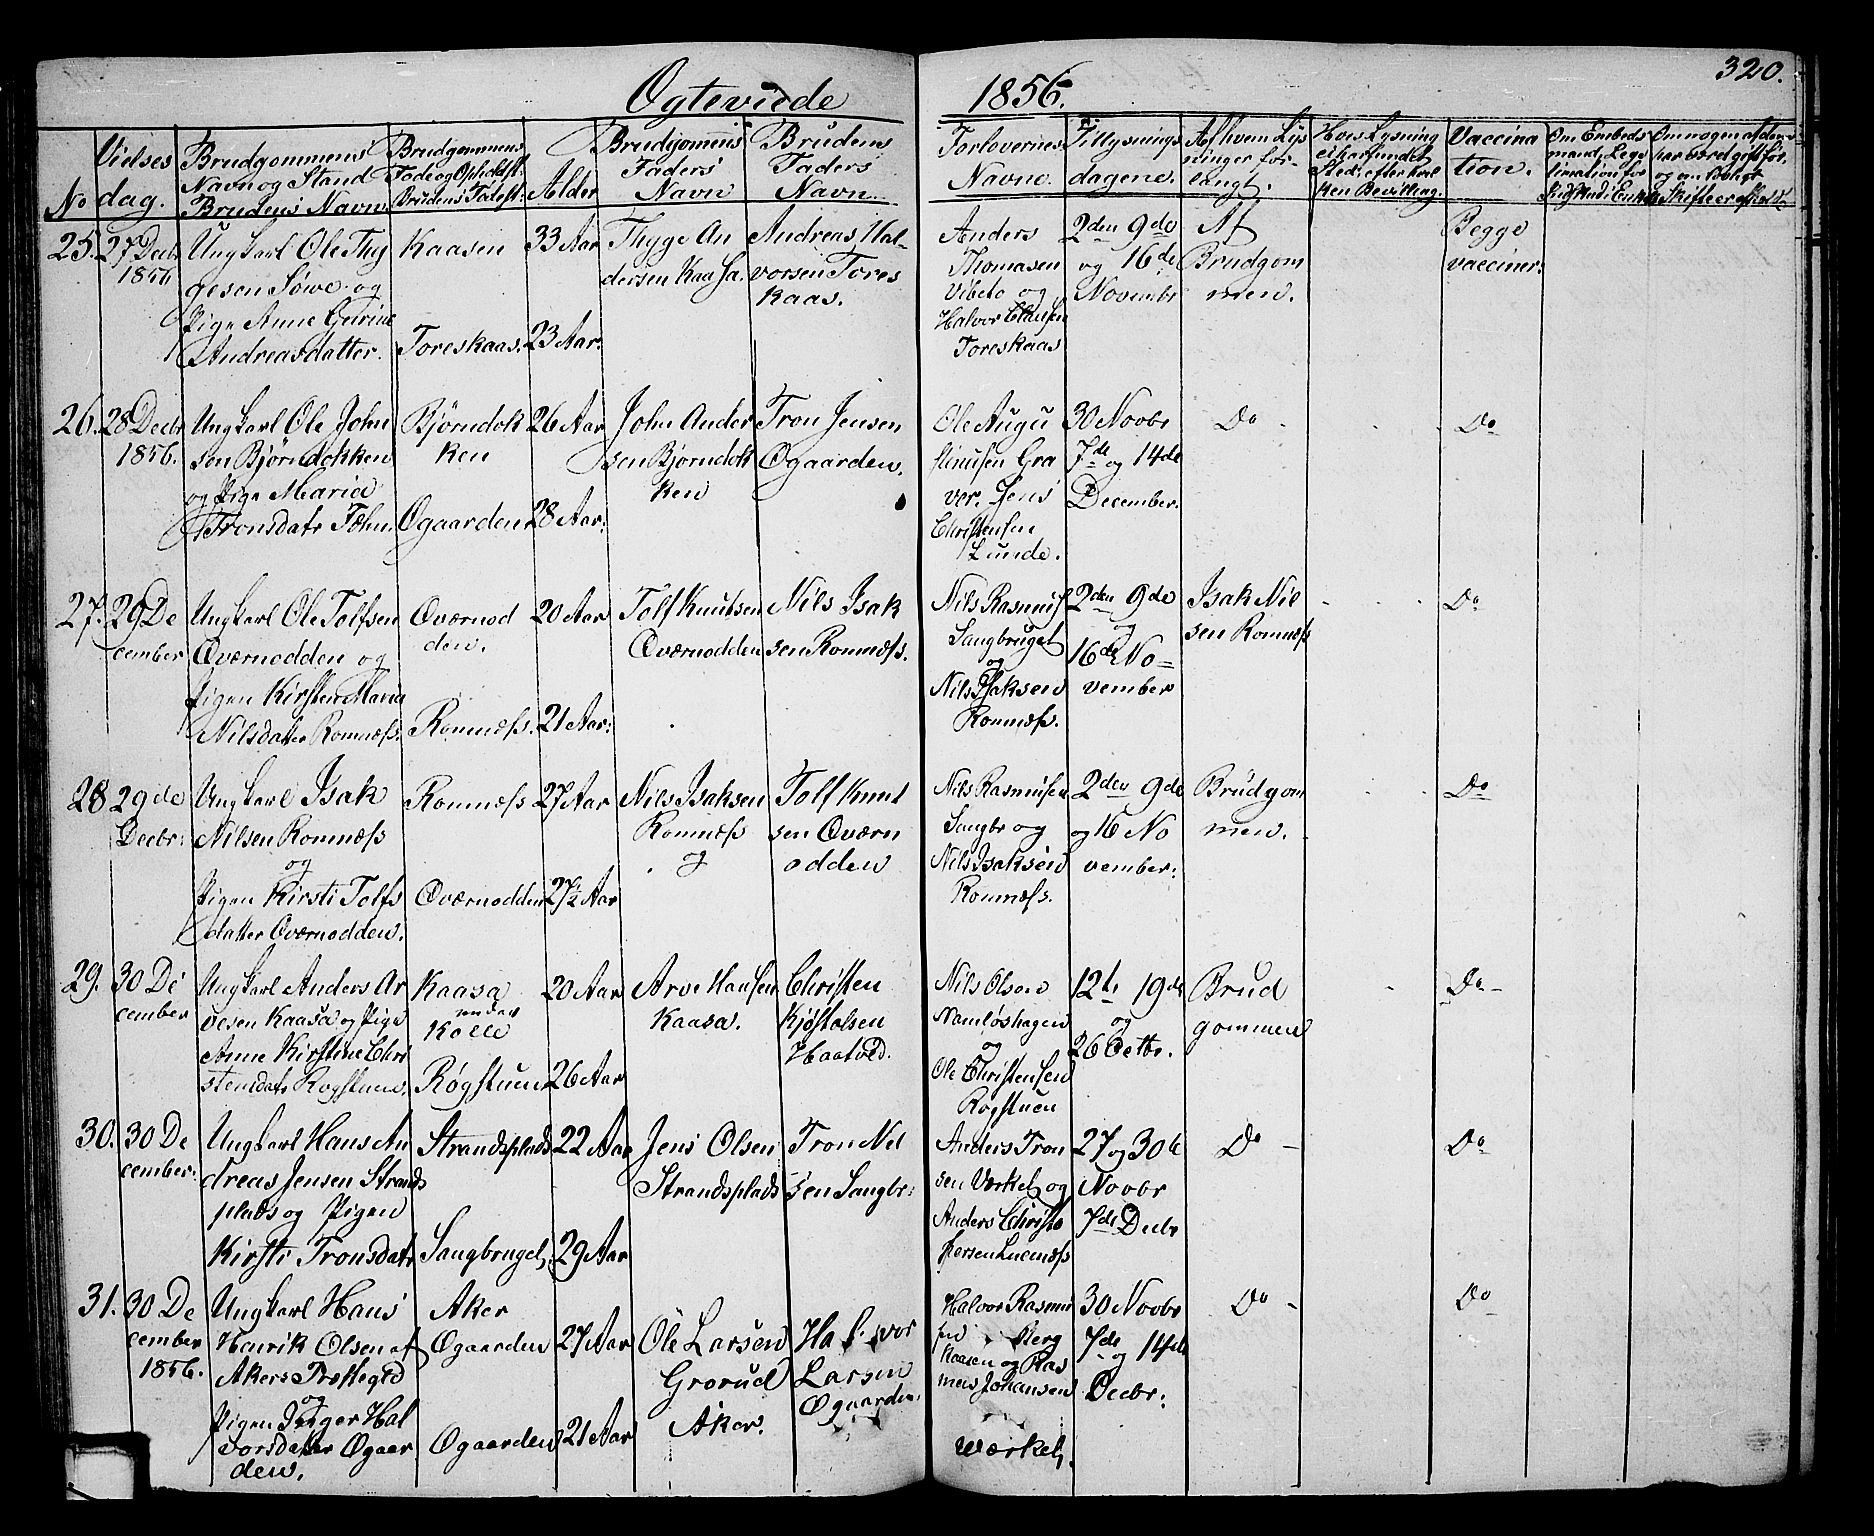 320.
Ogteviede 1856.
No
Vielses dag.
Brudgommens Navn og Stand Brudens Navn
Brudgommens Føde og Opholdst: Brudens Fødest:
Alder
Brudgommens Faders Navn
Brudens Faders Navn.
Forlovernes Navne.
Tillysnings dagene.
Af hvem Lys ninger for langt.
Vaccina tion.
25. 27 Decbr 1856
Ungkarl Ole Thy
gesen Søwe og
Pige Anne Gurine
Andreasdatter.
Kaasen
Toreskaas.
33 Aar
23 Aar.
Thyge An
dersen Kaasa.
Andreas Hal-
vorsen Tores
kaas.
Anders
Thomasen
Vibeto og
Halvor Clausen
Toreskaas
2den 9de
og 16de
Novembr
Af
Brudgom
men.
Begge
vacciner:
26. 28 Decbr
1856.
Ungkarl Ole John
sen Bjørndokken
og Pige Maria
Tronsdatr Fæhn.
Bjørndok
ken
Ogaarden
26 Aar
28 Aar:
John Ander
sen Bjørndok
ken
Tron Jensen
Ogaarden.
Ole Augu
stinusen Gra
ver. Jens
Christensen
Lunde.
30 Novbr
7de og 14de
December.
Do
Do
27. 29 De
cember
Ungkarl Ole Tolfsen
Oværnodden og
Pigen Kirsten Maria
Nilsdatter Romnæss.
Oværnod
den.
Romnæss.
20 Aar
21 Aar:
Tolf Knutsen
Oværnodden
Nils Isak
sen Romnæss.
Nils Rasmus
Saugbruget
og
Nils Isaksen
Romnæss.
2den 9de
og
16de No=
vember
Isak Nil
sen Romnæss
Do
28 29de
Decbr:
Ungkarl Isak
Nilsen Romnæss
og
Pigen Kirsti Tolfs
datter Oværnodden.
Romnæss
Oværnodden
27 Aar
27½ Aar
Nils Isaksen
Romnæss
og
Tolf Knut
sen Oværn
odden
Nils Rasmusen
Saugbr og
Nils Isaksen
Romnæss.
2den 9de
og 16 No
vember:
Brudgom
men.
Do
29. 30 De
cember
Ungkarl Anders Ar
vesen Kaasa og Pige
Anne Kirstine Chri
stensdatr Røgstuen.
Kaasa
under
Kolle
Røgstuen
20 Aar
26 Aar
Arve Hansen
Kaasa.
Christen
Kjøstolsen
Haatved.
Nils Olsen
Namløshagen
og
Ole Christensen
Røgstuen
12te 19de
og
26 Octbr.
Brud
gommen
Do
30. 30 De
cember:
Ungkarl Hans An
dreas Jensen Strands
plads og Pigen
Kirsti Tronsdatr
Strandsplads
Saugbruget,
22 Aar
29 Aar
Jens Olsen
Strandsplads
Tron Nil
sen Saugbr:
Anders Tron
sen Værket og
Anders Christo
fersen Lucenæss
27 og 30te
Novbr
7de Decbr
Do
Do
31. 30 De
cember
1856.
Ungkarl Hans
Henrik Olsen af
Akers Præstegjd
og
Pigen Inger Hal
vorsdatter Ogaar
den.
Aker
Ogaarden
Ogaarden
27 Aar
21 Aar
Ole Larsen
Grorud
Aker.
Halvor
Larsen
Ogaarden.
Halvor Rasmu
sen Berg
Kaasen og Ras
mus Johansen
Værket.
30 Novbr
7de og 14de
Decbr:
Do
Do